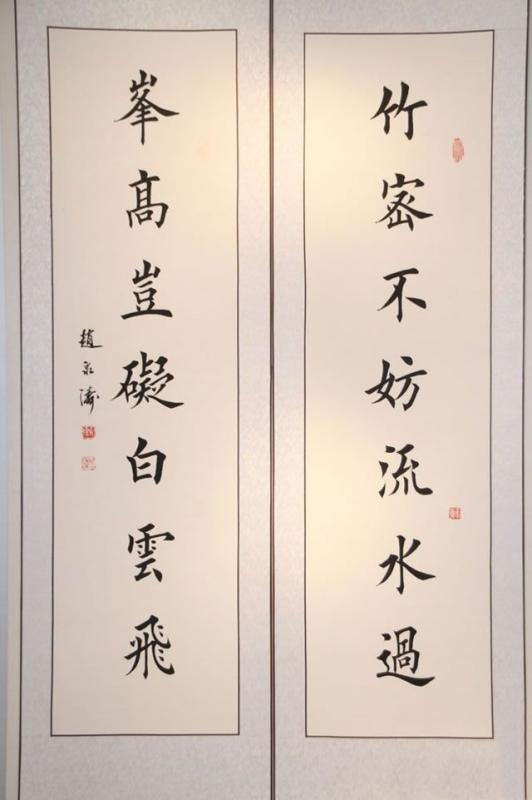 竹密不妨流水過
峯高豈礙白雲飛
趙永濤